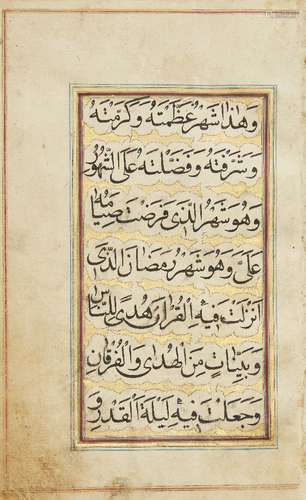 وَهٰذا شَهْرٌ عَظَّمْتَهُ وَكَرَّمْتَهُ
وَشَرَّفْتَهُ وَفَضَّلْتَهُ عَلَى الشُّهُورِ
وَهُوَ شَهْرُ الَّذِی فَرَضْتَ صِیٰامَهُ
عَلَیَّ وَهُوَ شَهْرُ رَمَضٰانَ الَّذِی
اَنْزَلْتَ فیهِ الْقُرْاٰنَ هُدًی لِلنّٰاسِ
وَبَیِّنٰاتٍ مِنَ الْهُدٰی وَالْفُرْقٰانِ
وَجَعَلْتَ فیهِ لَیْلَةَ الْقَدْرِ وَ